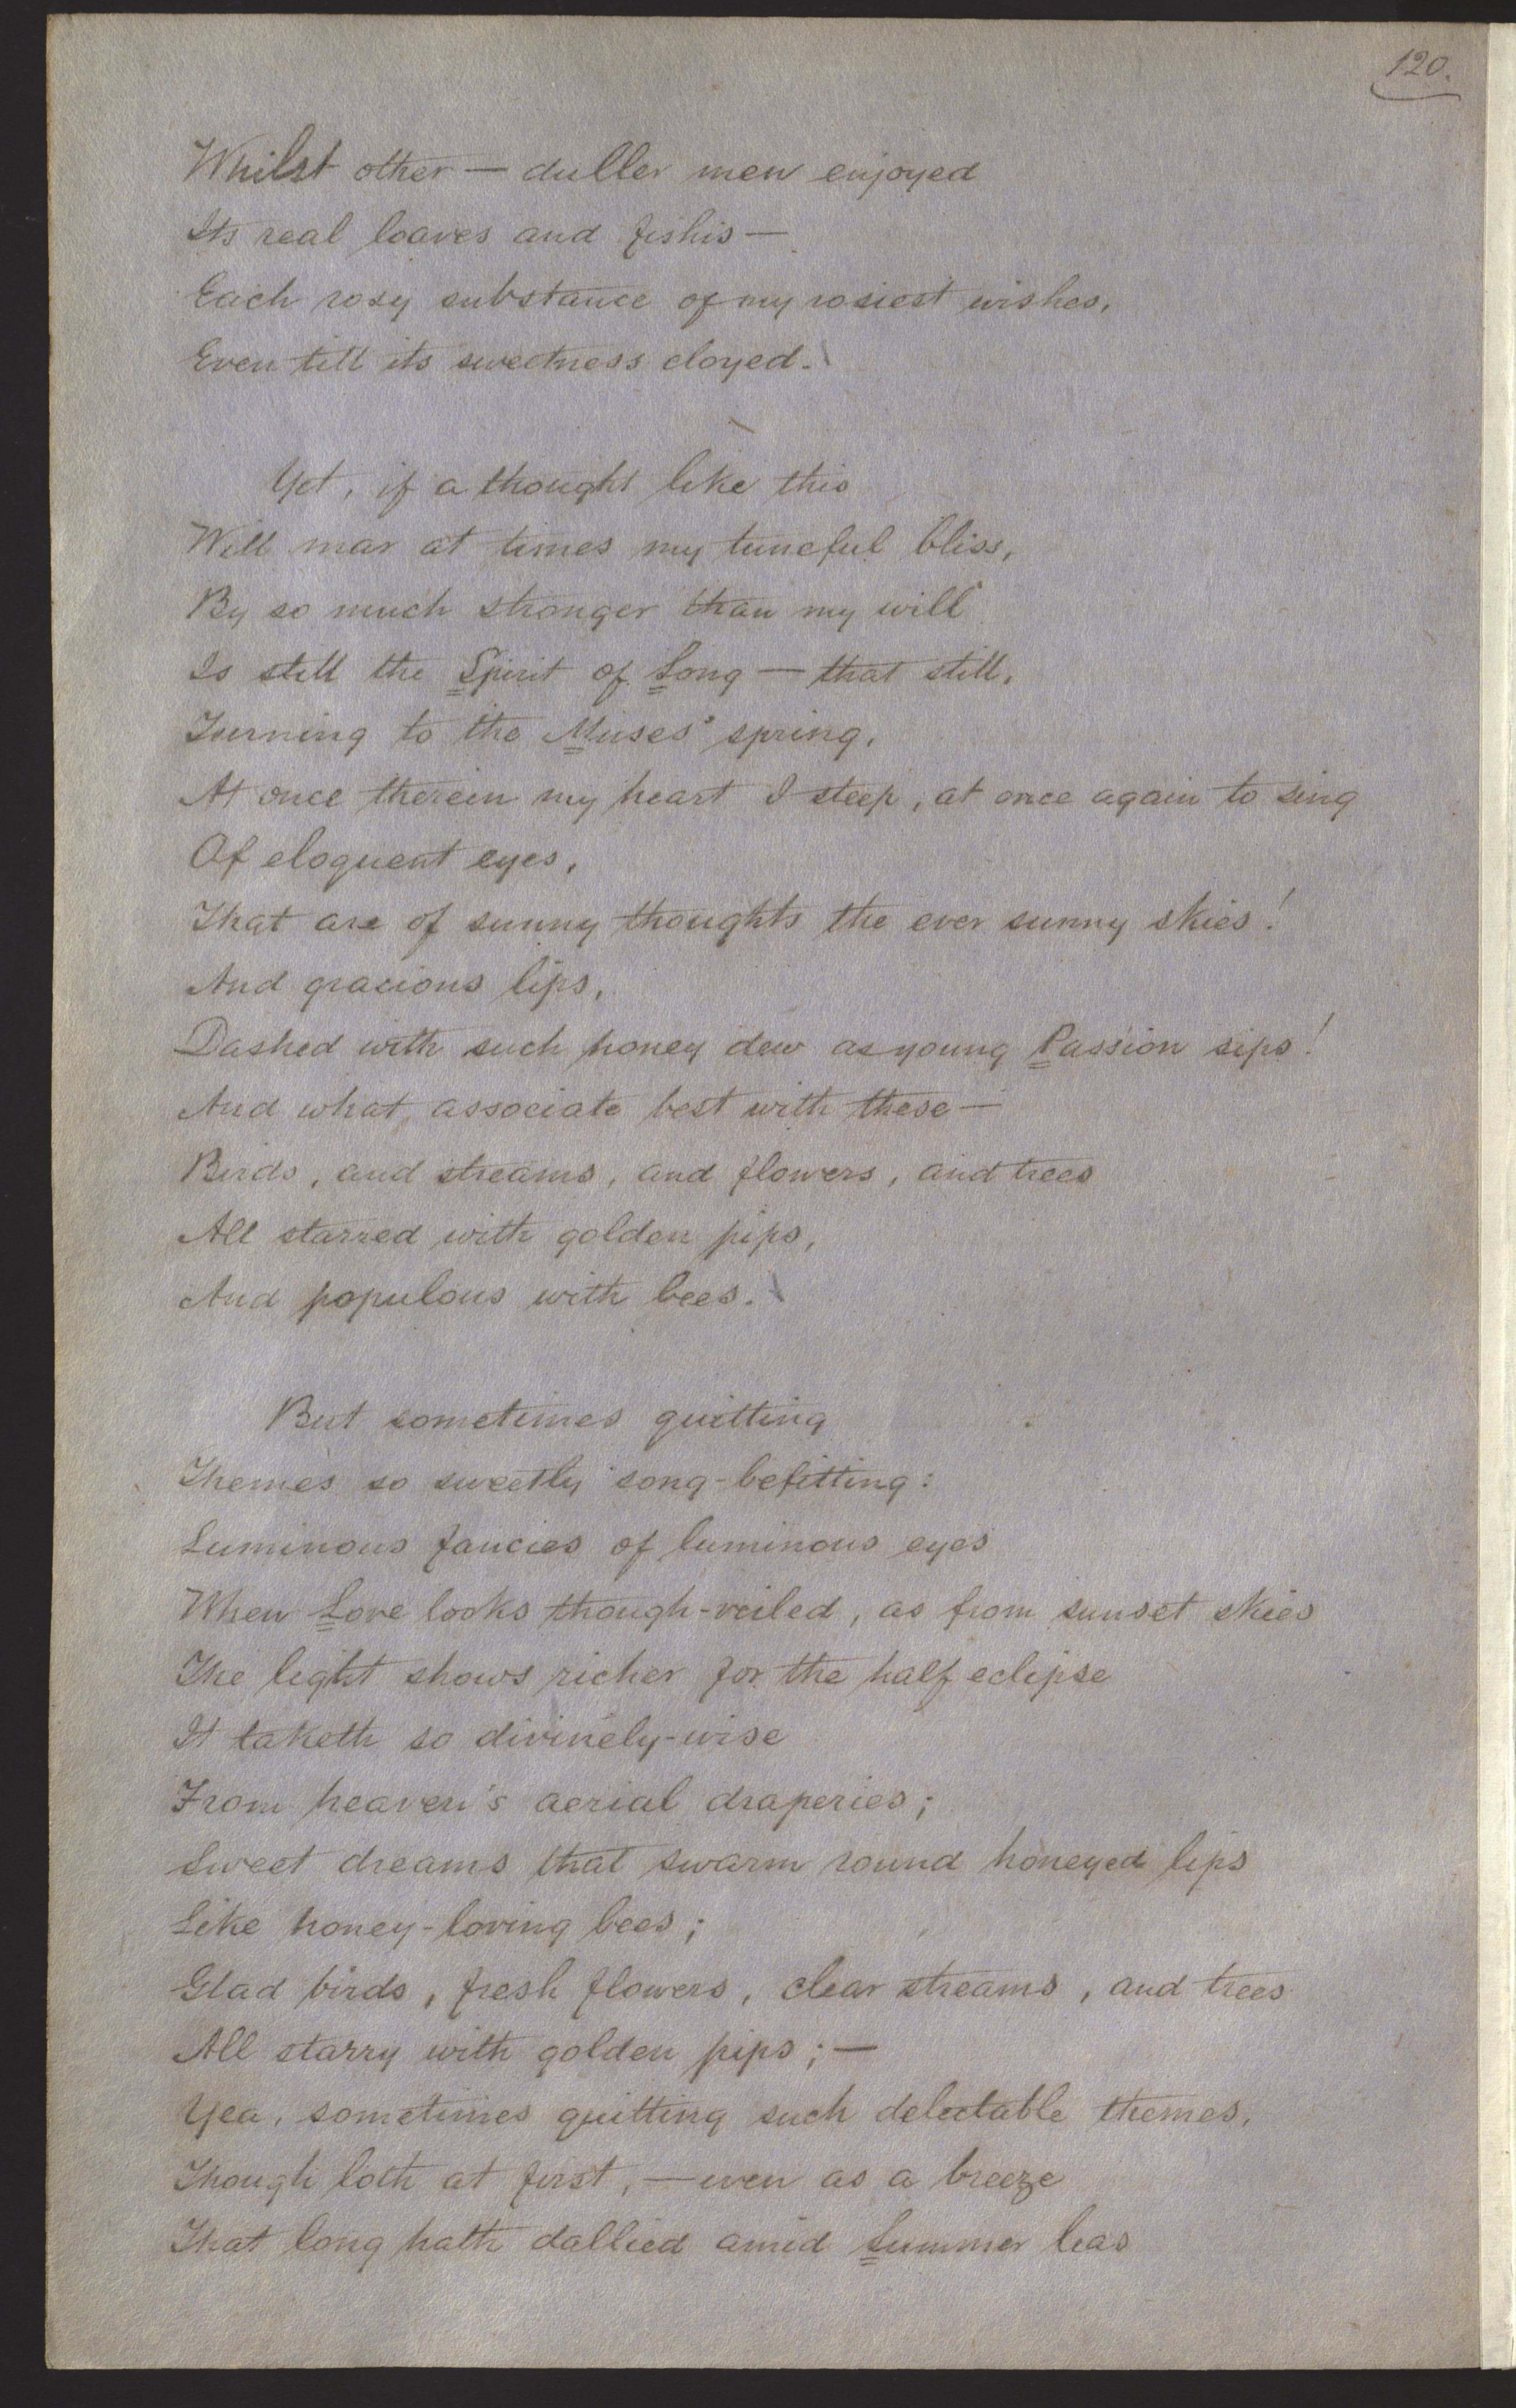 120.
Whilst other — duller men enjoyed
Its real loaves and fishis —
Each rosy substance of my rosiest wishes,
Even till its sweetness cloyed.
Yet, if a thought like this
Will mar at times my tuneful bliss,
By so much stronger than my will
Is still the Spirit of Song — that still,
Turning to the Muses' spring,
At once therein my heart I steep, at once again to sing
Of eloquent eyes,
That are of sunny thoughts the ever sunny skies!
And gracious lips,
Dashed with such honey dew as young Passion sips!
And what associate best with these —
Birds, and streams, and flowers, and trees
All starred with golden pips,
And populous with bees.
But sometimes quitting
Themes so sweetly song-befitting:
Luminous fancies of luminous eyes
When Love looks though-veiled, as from sunset skies
The light shows richer for the half eclipse
It taketh so divinely-wise
From heaven's aerial draperies;
Sweet dreams that swarm round honeyed lips
Like honey-loving bees;
Glad birds, fresh flowers, clear streams, and trees
All starry with golden pips; —
Yea, sometimes quitting such delectable themes,
Though loth at first, — even as a breeze
That long hath dallied amid Summer leas